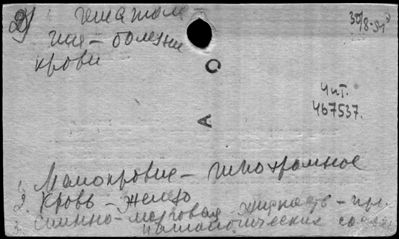 2) гематоло-
гия - болезни
крови
30/8-51
А О
Чит.
467537.
1. Малокровие - гипохромное
2. Кровь - железо
3. Спинно-мозговая жидкость - пр.
патологических